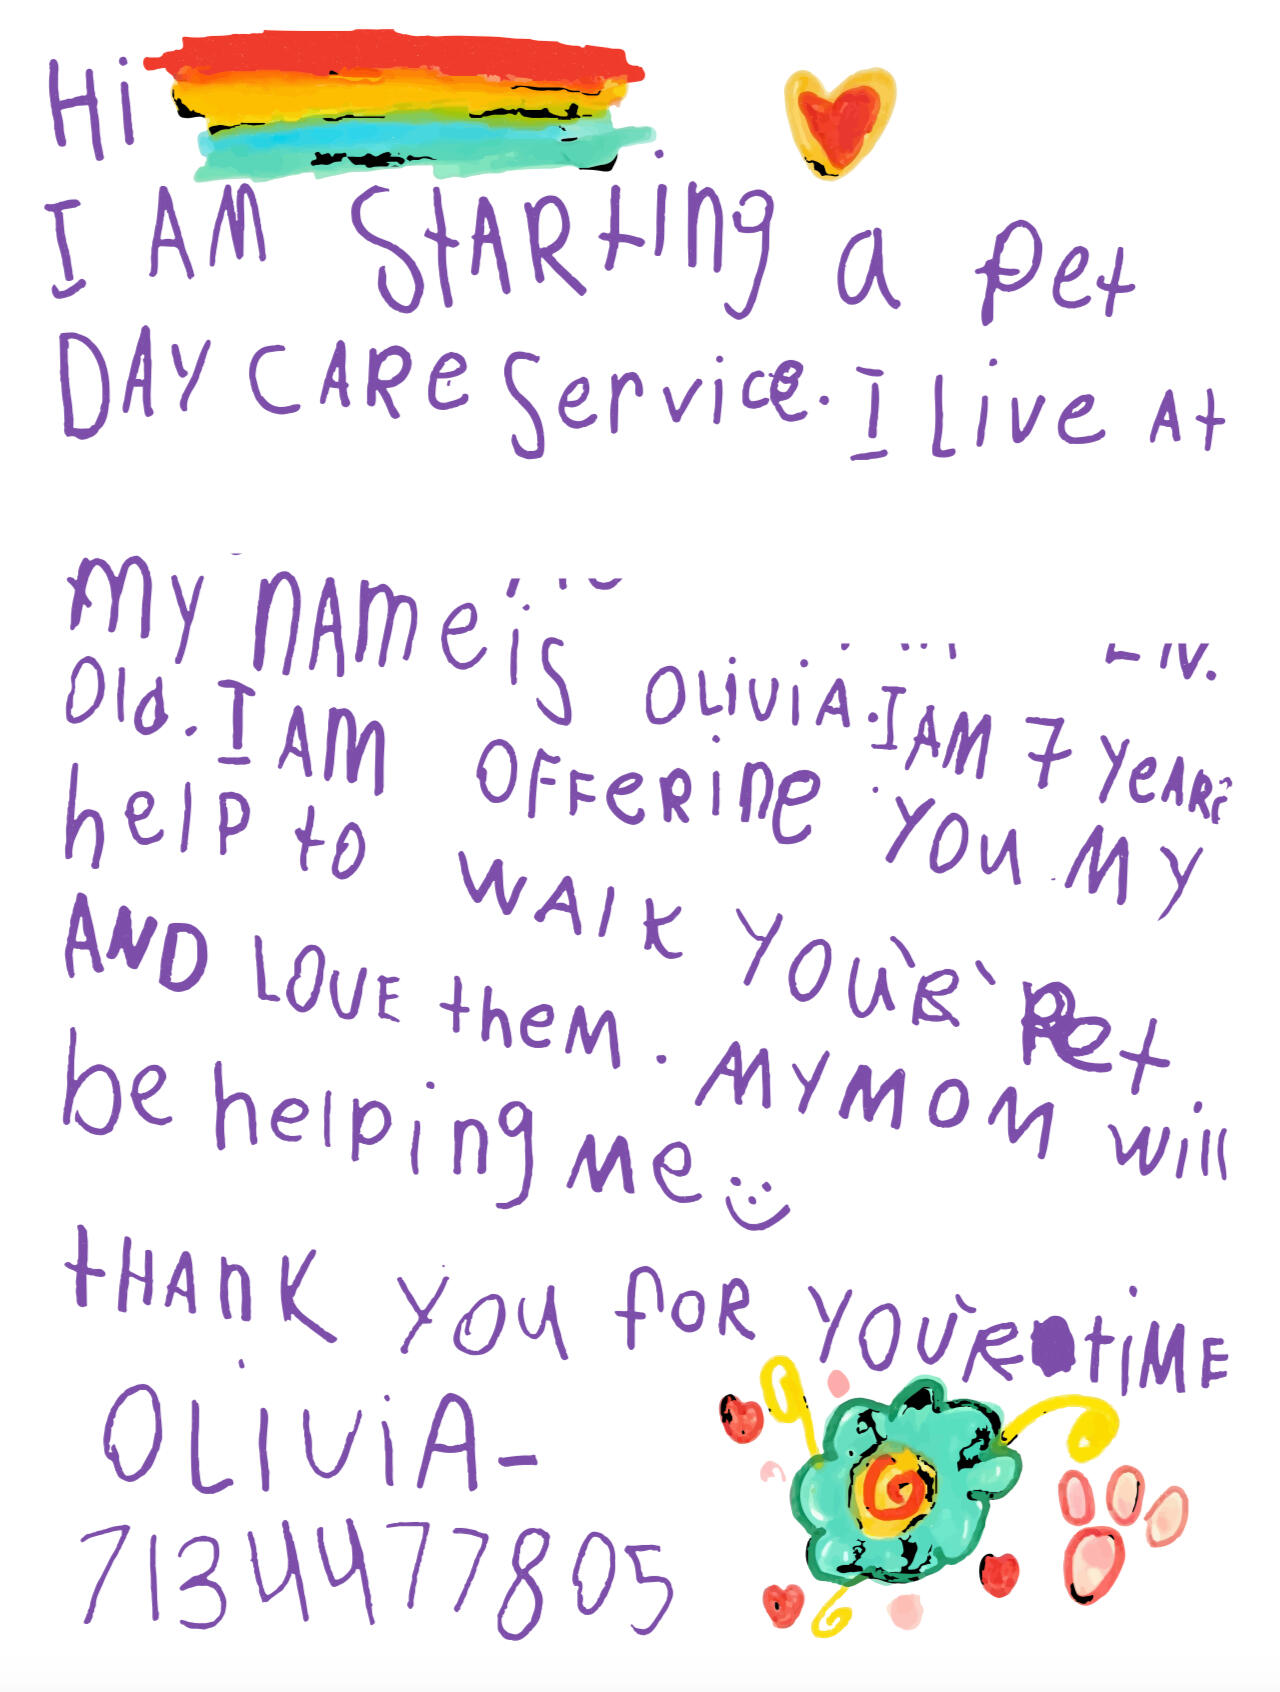 Hi
I AM StARting a Pet
DAY CARe Service. I live At
My NAMe is OLiviA. I AM 7 YeARs
Old. I AM OFFeRine YOU MY
help to WAlK YOU'R Pet
AND LOVE theM. MY MOM will
be helping Me
tHAnK YOU foR YOU'Re tiME
OLiViA-
7134477805